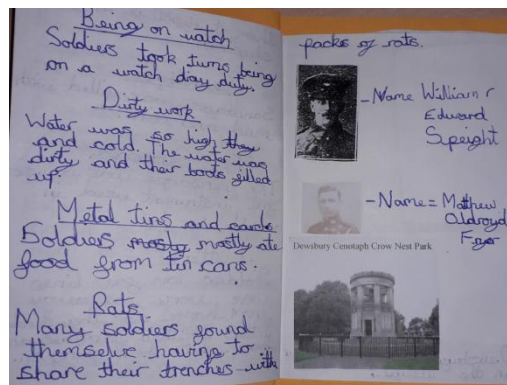 Being on watch
Soldiers took turns being
on a watch day duty.
Dirty work
Water was so high they
and cold. The water was
dirty and their boots filled
up
Metal tins and cards
Soldiers mostly mostly ate
food from tin cans.
Rats
Many soldiers found
themselve having to
share their trenches with
packs of rats.
- Name William r
Edward
Speight
- Name = Matthew
Oldroyd
Fryer
Dewsbury Cenotaph Crow Nest Park